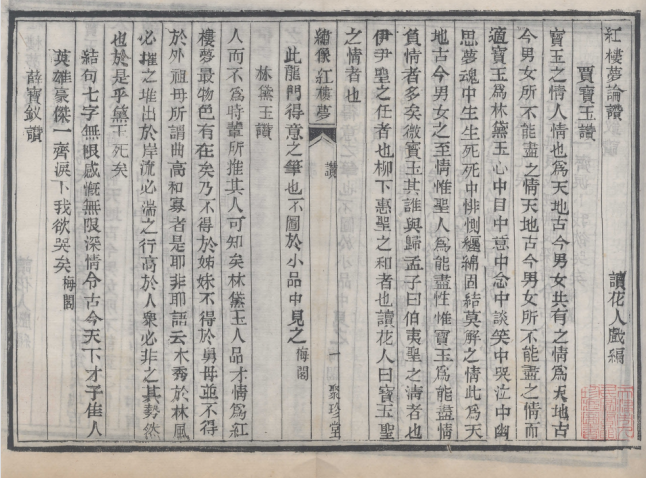 紅樓夢論贊　讀花人戲編
賈寶玉讚
寶玉之情人情也爲天地古今男女共有之情爲天地古
今男女所不能盡之情天地古今男女所不能盡之情而
適寶玉爲林黛玉心中目中意中念中談笑中哭泣中幽
思夢魂中生生死死中悱惻纏綿固結莫解之情此爲天
地古今男女之至情惟聖人爲能盡性惟寶玉爲能盡情
負情者多矣微寶玉其誰與歸孟子曰伯夷聖之清者也
伊尹聖之任者也柳下惠聖之和者也讀花人曰寶玉聖
之情者也
繡像紅樓夢　讚　一　聚珍堂
此龍門得意之筆也不圖於小品中見之　梅閣
林黛玉讚
人而不爲時輩所推其人可知矣林黛玉人品才情爲紅
樓夢最物色有在矣乃不得於姊妹不得於舅母並不得
於外祖母所謂曲高和寡者是耶非耶語云木秀於林風
必摧之堆出於岸流必湍之行高於人衆必非之其勢然
也於是乎黛玉死矣
結句七字無限感慨無限深情分古今天下才子佳人
英雄豪傑一齊淚下我欲哭矣　梅閣
薛寶釵讚